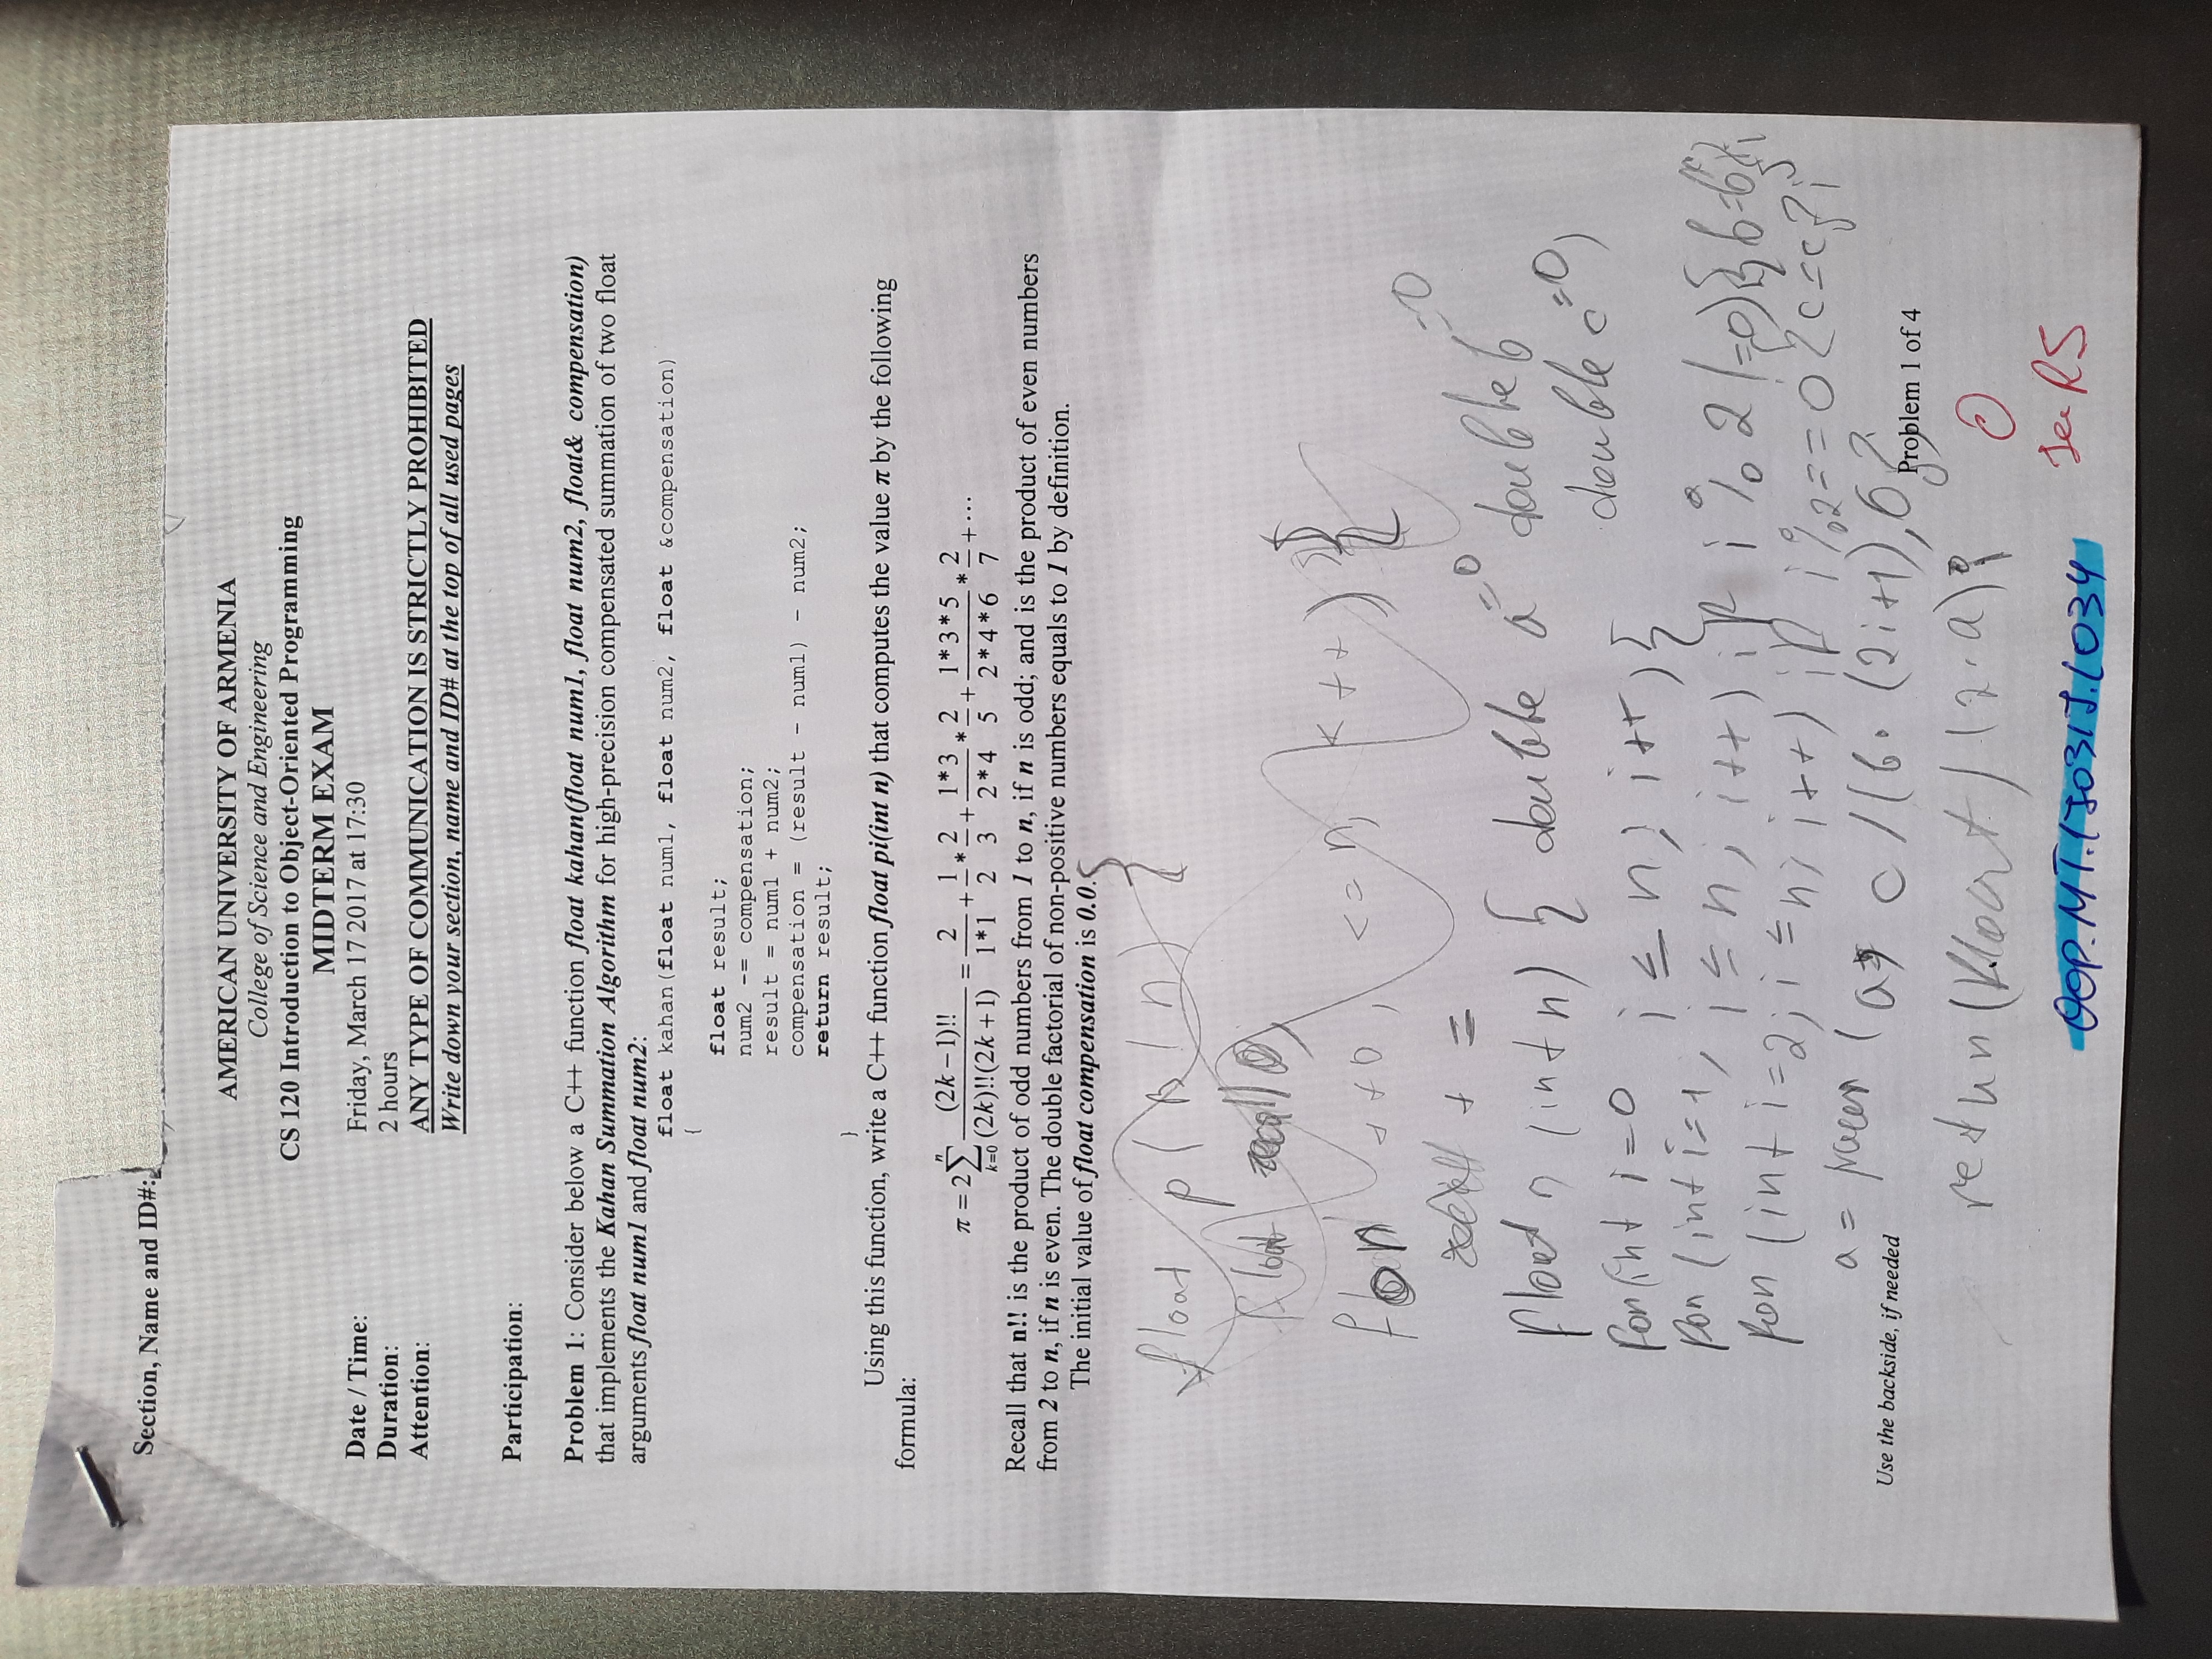 Section, Name and ID#:
AMERICAN UNIVERSITY OF ARMENIA
College of Science and Engineering
CS 120 Introduction to Object-Oriented Programming
MIDTERM EXAM
Date / Time: Friday, March 17 2017 at 17:30
Duration: 2 hours
Attention: ANY TYPE OF COMMUNICATION IS STRICTLY PROHIBITED
Write down your section, name and ID# at the top of all used pages
Participation:
Problem 1: Consider below a C++ function float kahan(float num1, float num2, float& compensation)
that implements the Kahan Summation Algorithm for high-precision compensated summation of two float
arguments float num1 and float num2:
float kahan(float num1, float num2, float &compensation)
{
float result;
num2 -= compensation;
result = num1 + num2;
compensation = (result - num1) - num2;
return result;
}
Using this function, write a C++ function float pi(int n) that computes the value π by the following
formula:
π = 2∑_{k=0}^{n} (2k – 1)!! / ((2k)!!(2k + 1)) = 2/(1*1) + 1/2 * 2/3 + (1*3)/(2*4) * 2/5 + (1*3*5)/(2*4*6) * 2/7 + ⋯
Recall that n!! is the product of odd numbers from 1 to n, if n is odd; and is the product of even numbers
from 2 to n, if n is even. The double factorial of non-positive numbers equals to 1 by definition.
The initial value of float compensation is 0.0.
float p( n) {
float
<= n; k ++) {
+ =
float (int n) { double a=0 double b=0
double c=0)
for(int i=0 i ≤ n; i++) {
for (int i=1, i ≤ n; i++) if i % 2 !=0) { b=b
for (int i=2; i ≤ n; i++) if i%2==0 { c=c
a = (a, c /(b. (2i+1),
Use the backside, if needed
Problem 1 of 4
return (float) (2.a);
0
RS
OOP.MT.170317.L034